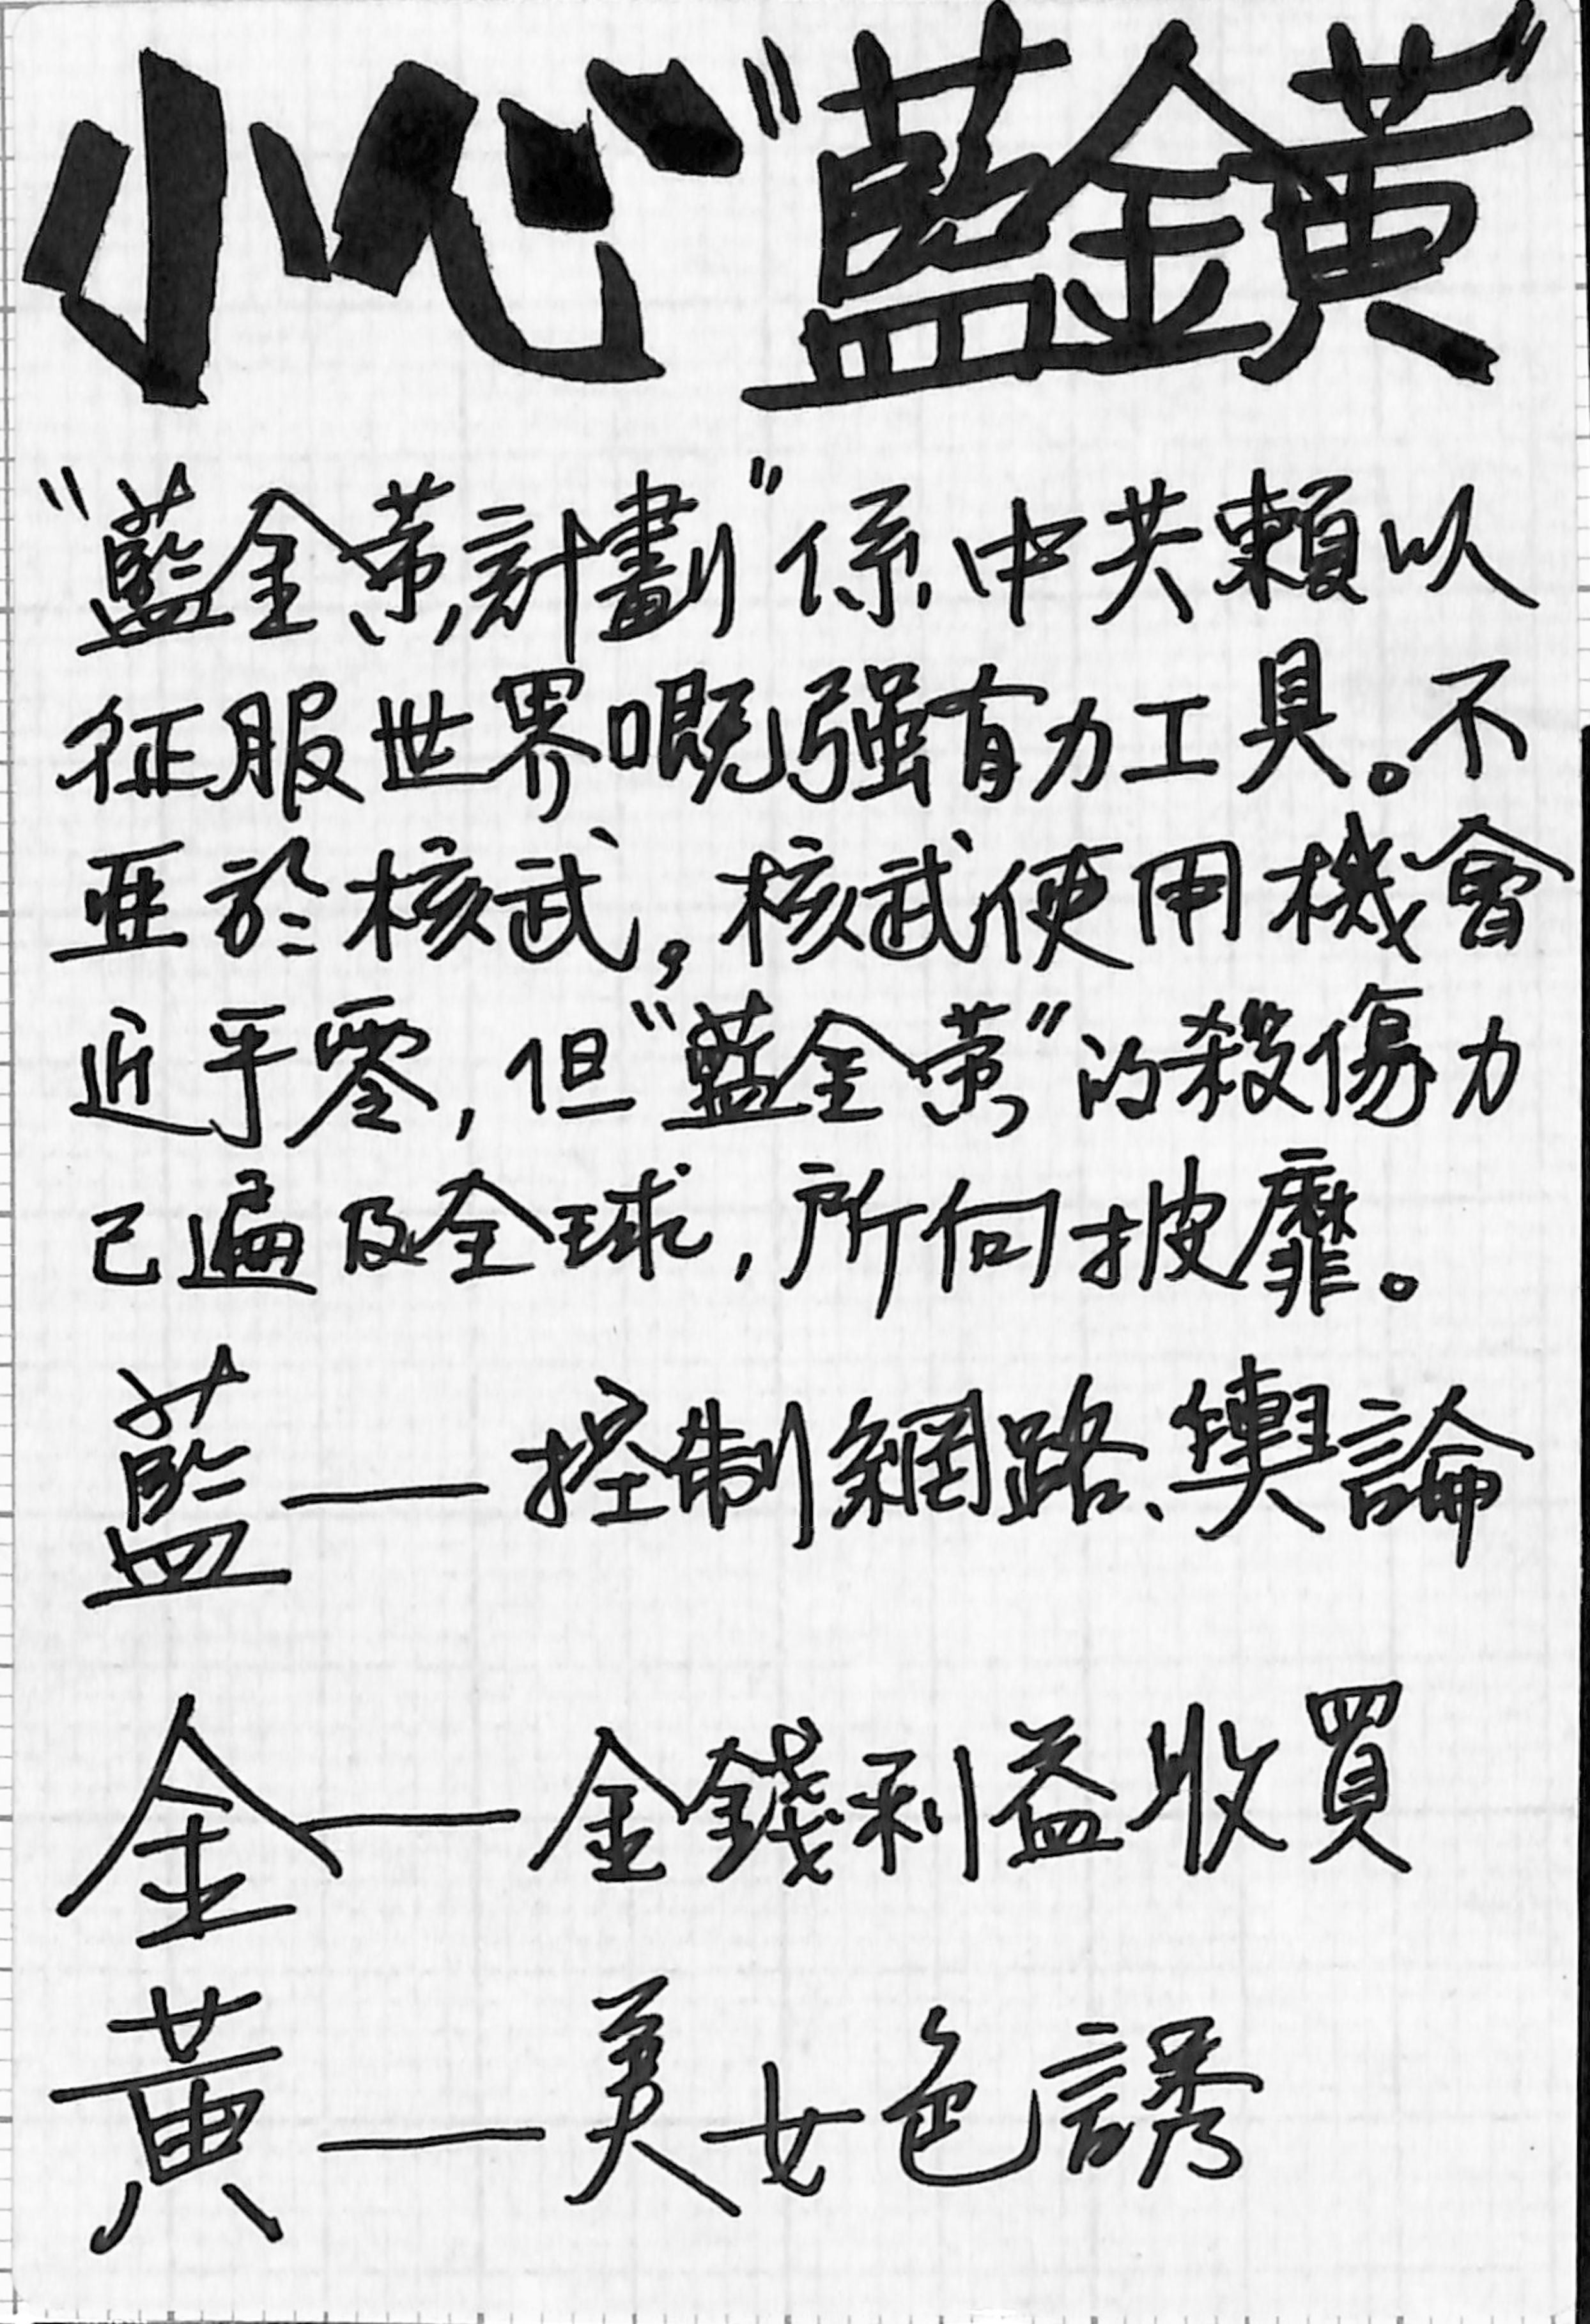 小心“藍金黃”
“藍金黃計劃”係中共賴以
征服世界嘅强有力工具。不
亚於核武。核武使用機會
近乎零,但“藍金黃”的殺傷力
已遍及全球,所向披靡。
藍—控制網路、輿論
金—金錢利益收買
黃—美女色誘